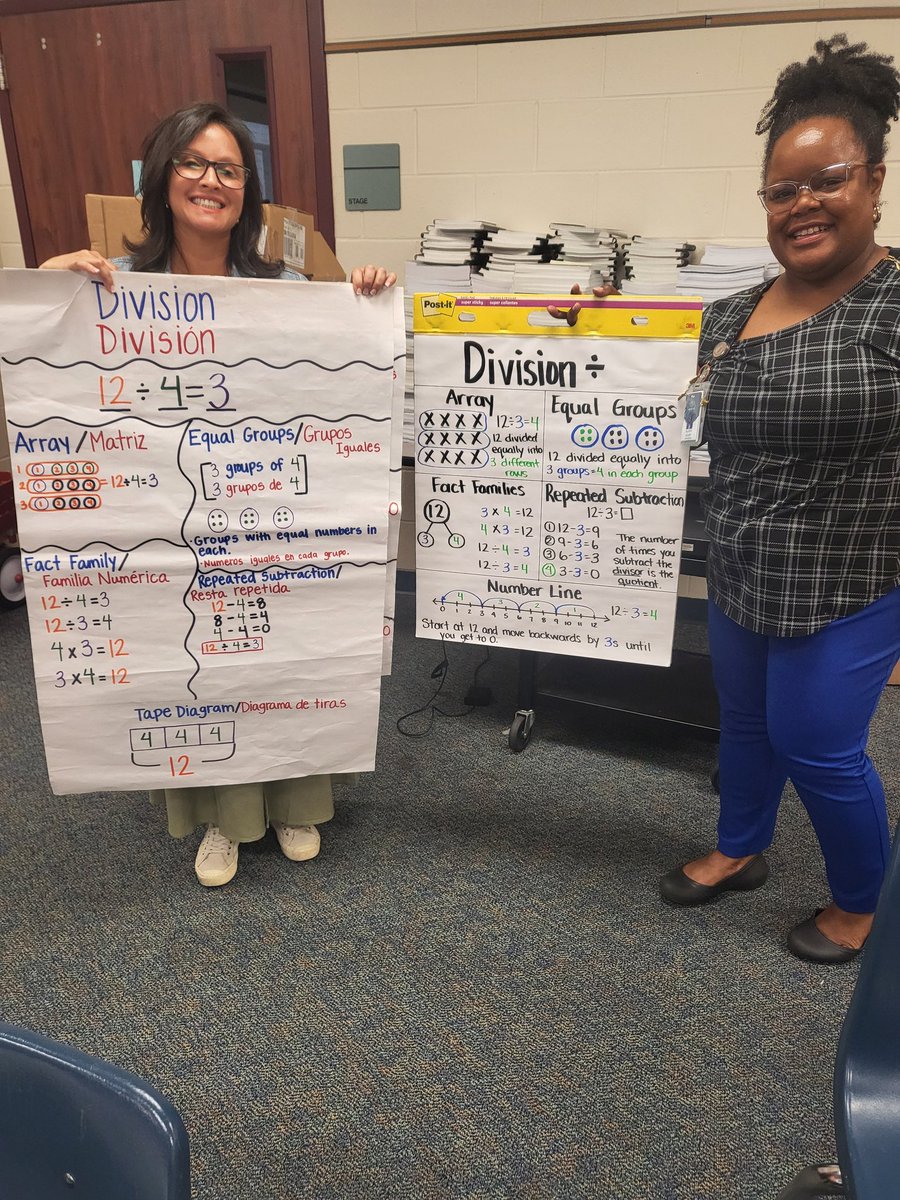 STAGE
Division
División
12 ÷ 4 = 3
Array / Matriz
1 1 2 3 4
2 1 2 3 4 = 12÷4=3
3 1 2 3 4
Equal Groups/Grupos
Iguales
3 groups of 4
3 grupos de 4
• Groups with equal numbers in
each.
• Numeros iguales en cada grupo.
Fact Family/
Familia Numérica
12÷4=3
12÷3=4
4x3=12
3x4=12
Repeated Subtraction/
Resta repetida
12-4=8
8-4=4
4-4=0
12÷4=3
Tape Diagram/Diagrama de tiras
4 4 4
12
Post-it
super sticky
super collantes
3M
Division ÷
Array
X X X X
X X X X
X X X X
12÷3=4
12 divided
equally into
3 different
rows
Equal Groups
12 divided equally into
3 groups=4 in each group
Fact Families
12
3 4
3 x 4 =12
4 x 3 =12
12 ÷ 4 = 3
12 ÷ 3 = 4
Repeated Subtraction
12÷3=☐
1 12-3=9
2 9-3=6
3 6-3=3
4 3-3=0
The number
of times you
subtract the
divisor is the
quotient.
Number Line
4 3 2 1
0 1 2 3 4 5 6 7 8 9 10 11 12
12÷3=4
Start at 12 and move backwards by 3s until
you get to 0.